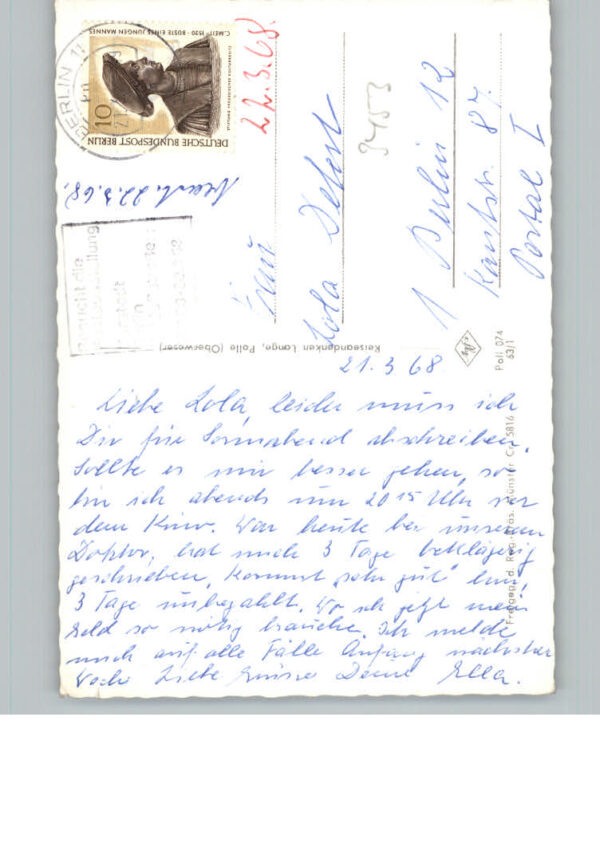 21.3.68
Liebe Lola, leider muss ich
Dir für Sonnabend abschreiben.
Sollte es mir besser gehen, so
bin ich abends um 20 15 Uhr vor
dem Kino. War heute bei unserem
Doktor, hat mich 3 Tage bettlägerig
geschrieben, kommt sehr gut hin,
3 Tage unbezahlt. Wo ich jetzt mein
Geld so nötig brauche. Ich melde
mich auf alle Fälle Anfang nächster
Woche Liebe Grüsse Deine Ella.
Frau
Lola
1 Berlin 12
Kantstr. 87
Portal I
22.3.68.
22.3.68.
9453
C. MEIT · 1520 · BÜSTE EINES JUNGEN MANNES
STIFTUNG PREUSSISCHER KULTURBESITZ
10
DEUTSCHE BUNDESPOST BERLIN
BERLIN 11
Reiseandenken Lange, Polle (Oberweser)
Poll 074
63/1
Freigeg. d. Reg. Präs. Münster Cr. 5816